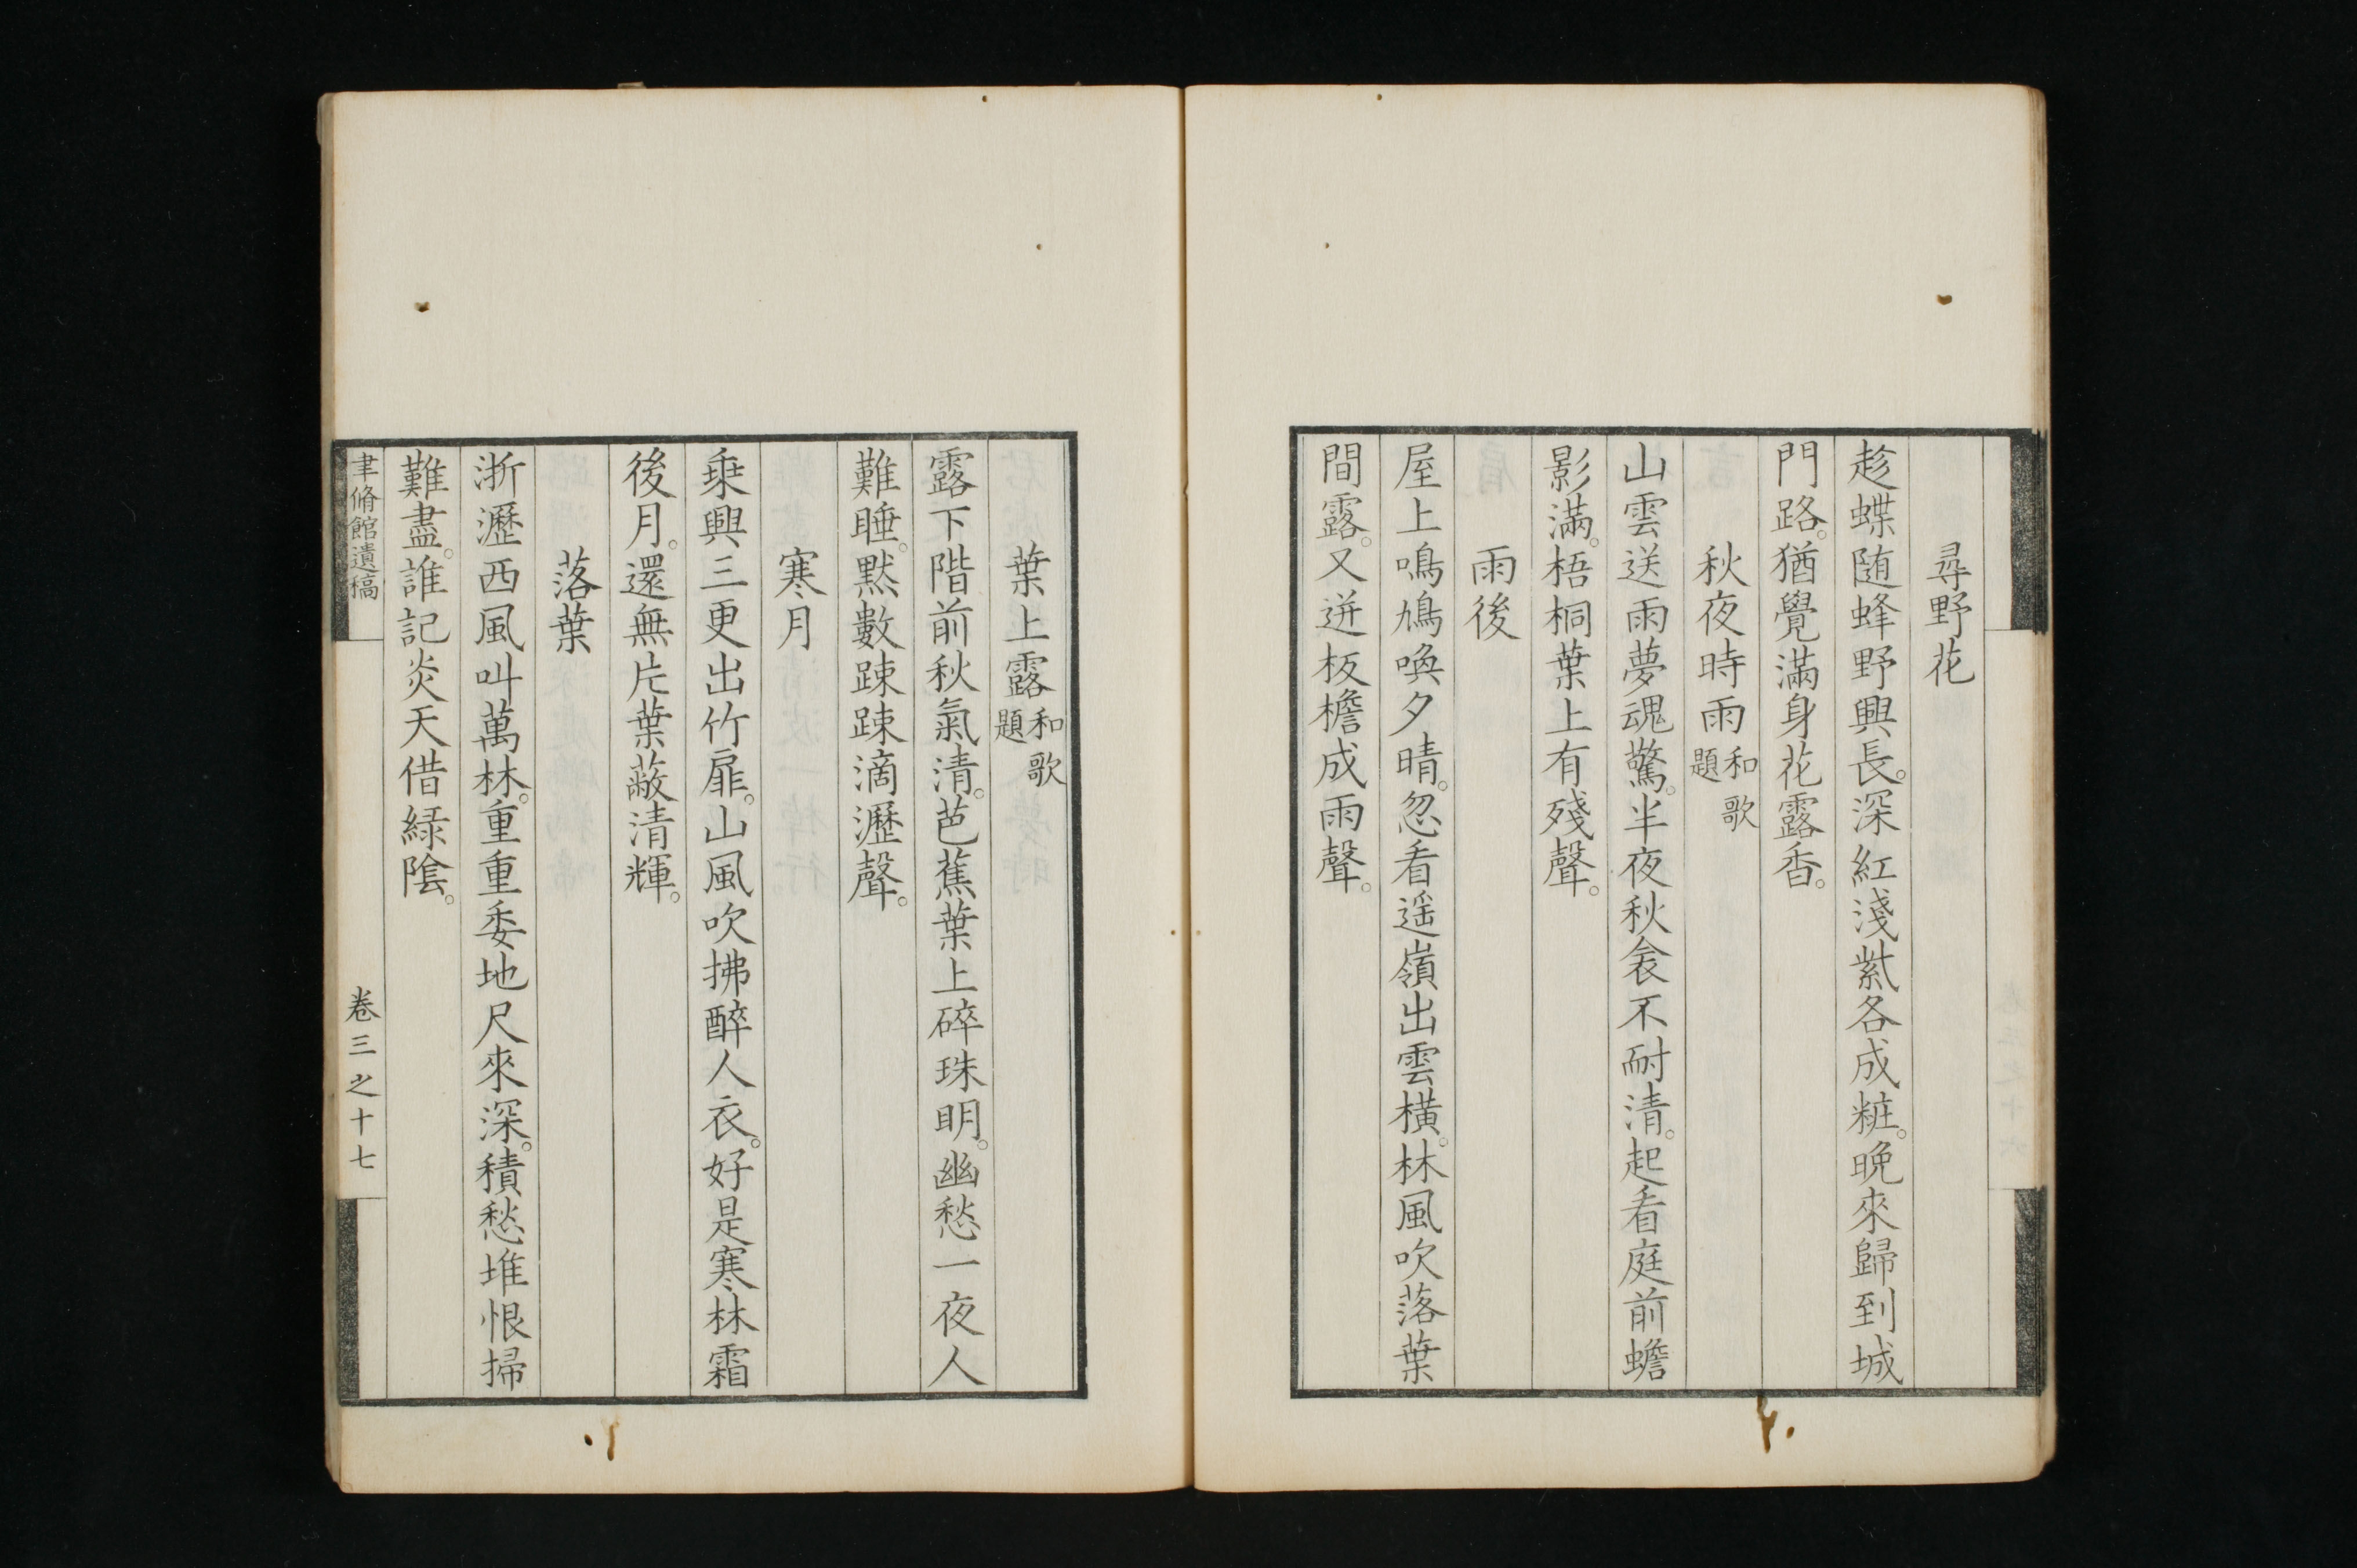 尋野花
趁蝶随蜂野興長。深紅淺紫各成粧。晩來歸到城
門路。猶覺滿身花露香。
秋夜時雨和歌題
山雲送雨夢魂驚。半夜秋衾不耐清。起看庭前蟾
影滿。梧桐葉上有殘聲。
雨後
屋上鳴鳩喚夕晴。忽看遥嶺出雲横。林風吹落葉
間露。又迸板檐成雨聲。
葉上露和歌題
露下階前秋氣清。芭蕉葉上碎珠明。幽愁一夜人
難睡。默數踈踈滴瀝聲。
寒月
乗興三更出竹扉。山風吹拂醉人衣。好是寒林霜
後月。還無片葉蔽清輝。
落葉
淅瀝西風叫萬林。重重委地尺來深。積愁堆恨掃
難盡。誰記炎天借緑陰。
聿脩館遺稿
卷三之十七